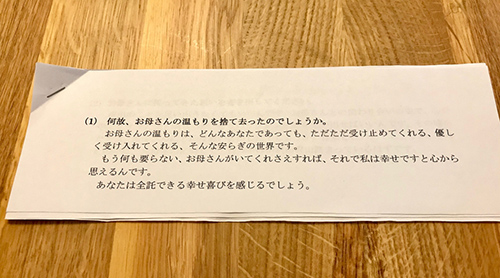 (1) 何故、お母さんの温もりを捨て去ったのでしょうか。
お母さんの温もりは、どんなあなたであっても、ただただ受け止めてくれる、優し
く受け入れてくれる、そんな安らぎの世界です。
もう何も要らない、お母さんがいてくれさえすれば、それで私は幸せですと心から
思えるんです。
あなたは全託できる幸せ喜びを感じるでしょう。